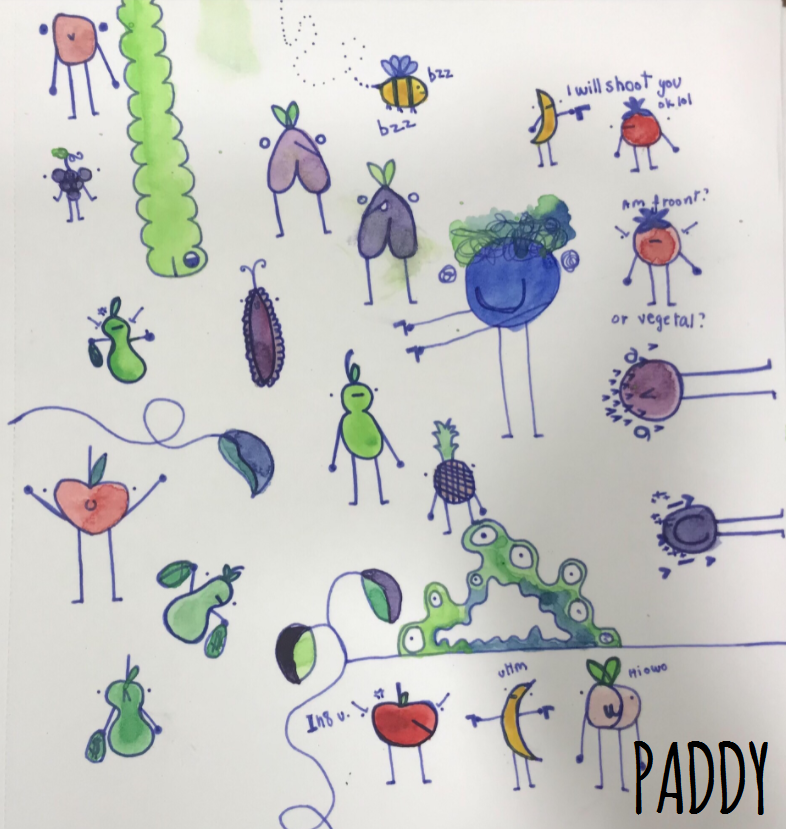 bzz
bzz
I will shoot you
ok lol
Am froont?
or vegetal?
uHm
Hiowo
PADDY